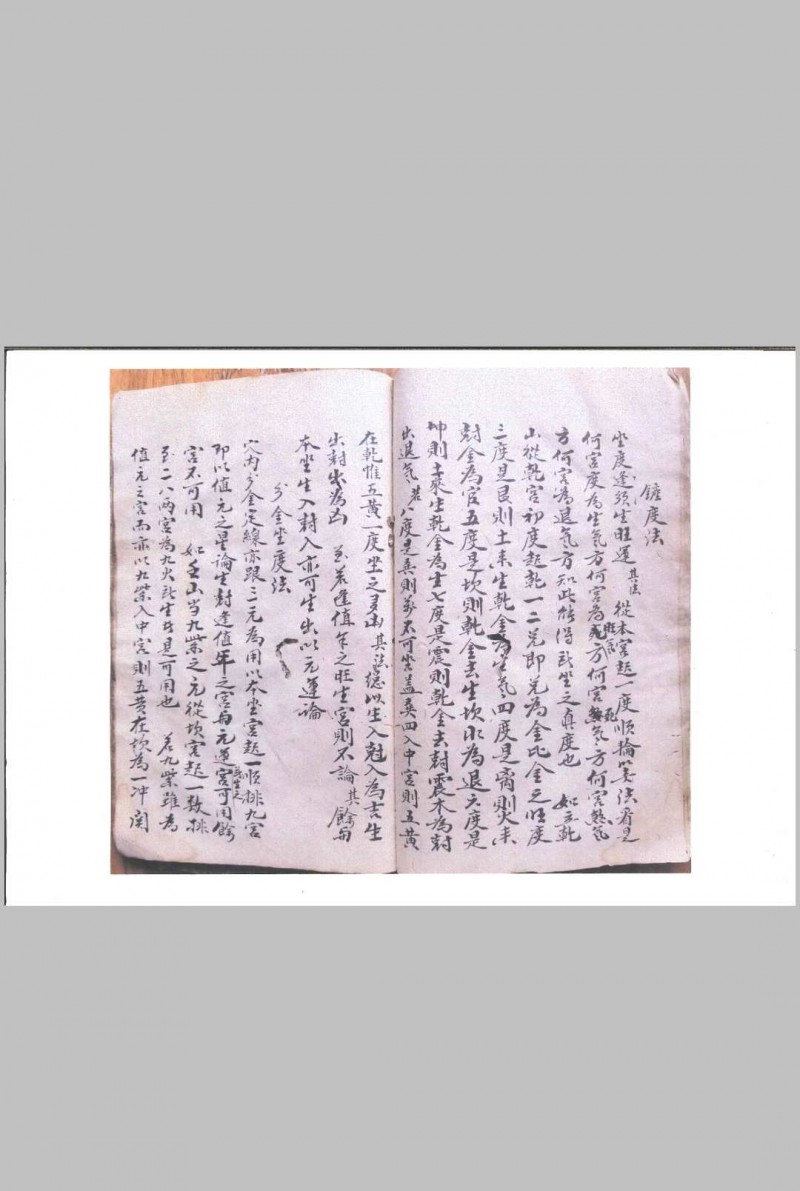 鑪度法
坐度逢須生旺運 其法 從本宮起一度順掄以看法看是
何宮度為生氣方何宮為旺氣方何宮死氣方何宮煞氣
方何宮為退氣方知此能得所坐之真度也 如立乾
山從乾宮初度起乾一二兑即兑為金比金之旺度
三度是艮則土来生乾金為生氣四度是离則火来
尅金為官五度是坎則乾金去生坎水為退六度是
坤則土來生乾金為生七度是震則乾金去尅震木為尅
出退氣 若八度是巽則萬不可坐蓋巽四入中宮則五黄
在乾惟五黄一度坐之多凶 其法總以生入尅入為吉生
出尅出為凶 至若逢值年之旺生宮則不論其餘与
本坐生入尅入亦可生出以元運論
分金坐度法
穴內分金定線亦跟三元為用以本坐宮起一順排九宮
即以值元之星論生尅逢值年之宮与元運所生之宮可用餘
宮不可用 如壬山当九紫之元從坎宮起一数排
至二八两宮為九火所生此是可用也 若九紫雖為
值元之宮而亦以九紫入中宮則五黄在坎為一冲関